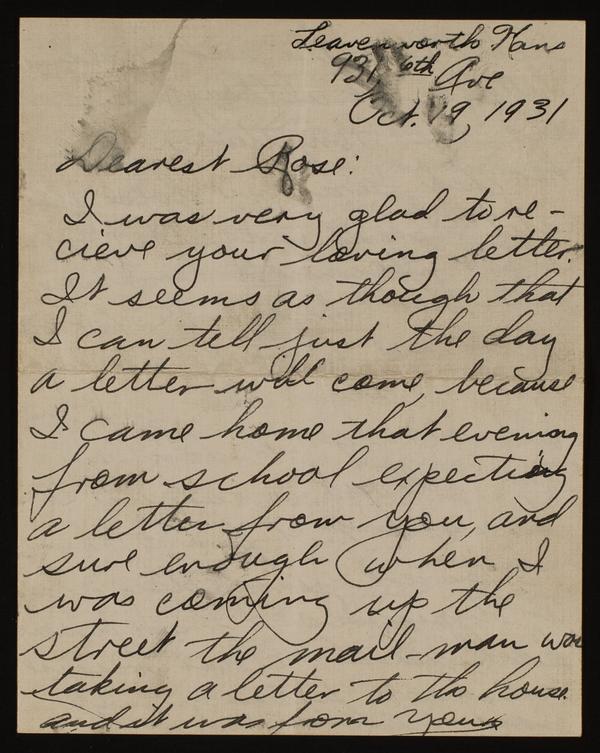 Leavenworth Kans
931 6th Ave
Oct. 19, 1931
Dearest Rose:
I was very glad to re-
cieve your loving letter.
It seems as though that
I can tell just the day
a letter will come, because
I came home that evening
from school expecting
a letter from you, and
sure enough when I
was coming up the
street the mail-man was
taking a letter to the house.
and it was from you